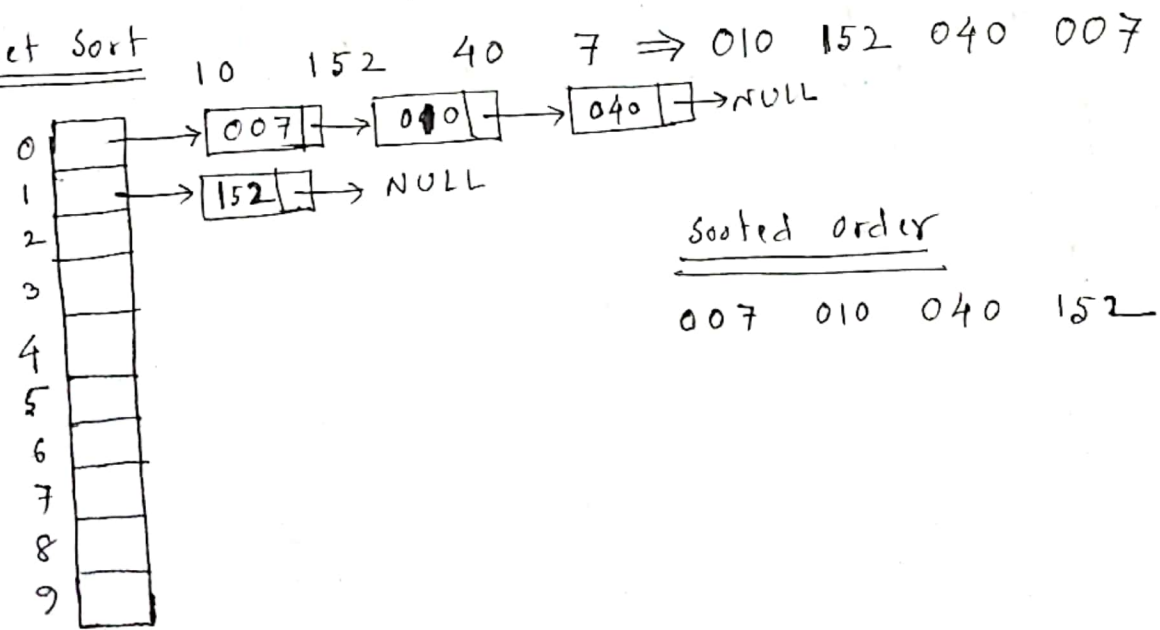 et Sort
10 152 40 7 ⇒ 010 152 040 007
0 → 007 → 010 → 040 → NULL
1 → 152 → NULL
2
3
4
5
6
7
8
9
Sooted order
007 010 040 152